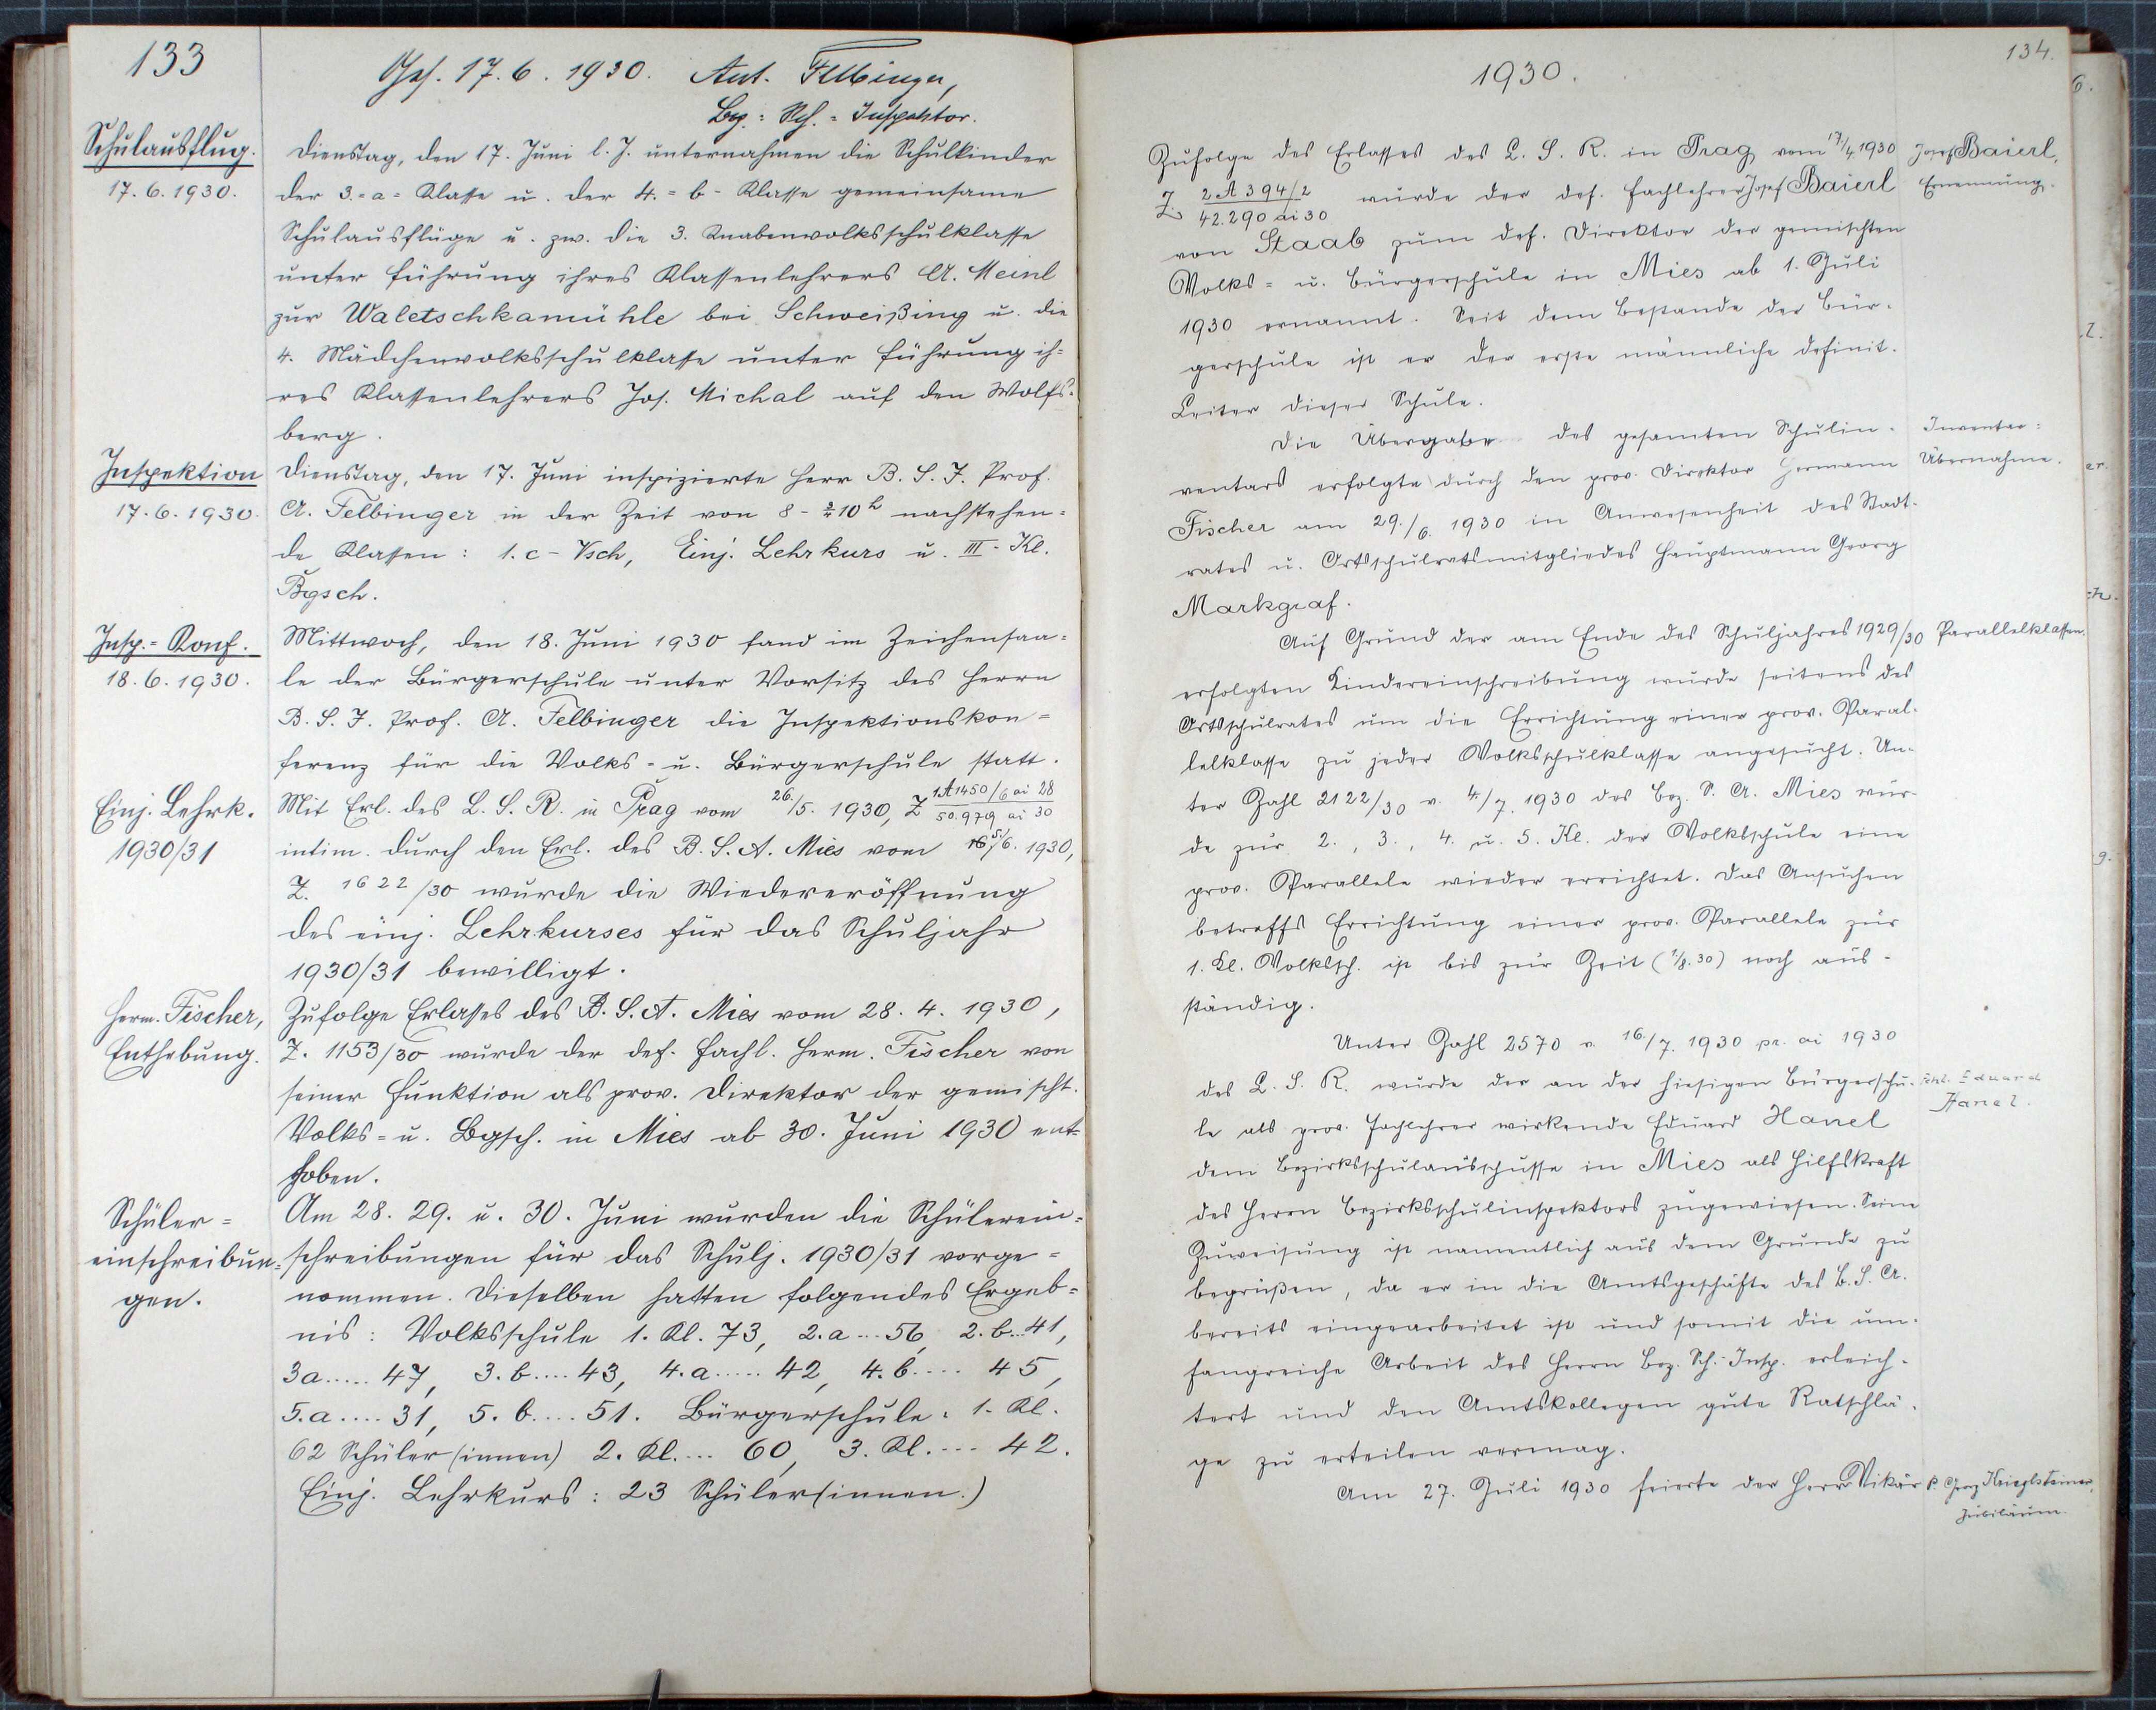 133
Ges. 17.6.1930. Ant. Felbinger,
Bez.=Sch.=Inspektor.
Schulausflug.
17.6.1930.
Dienstag, den 17. Juni l. J. unternahmen die Schulkinder
der 3.=a=Klasse u. der 4.=b-Klasse gemeinsame
Schulausflüge u. zw. die 3. Knabenvolksschulklasse
unter Führung ihres Klassenlehrers A. Meinl
zur Waletschkamühle bei Schweißing u. die
4. Mädchenvolksschulklasse unter Führung ih=
res Klassenlehrers Jos. Michal auf den Wolfs=
berg.
Inspektion
17.6.1930.
Dienstag, den 17. Juni inspizierte Herr B. S. I. Prof.
A. Felbinger in der Zeit von 8-½10h nachstehen=
de Klassen: 1.c-Vsch, Einj. Lehrkurs u. III. Kl.
Bgsch.
Insp.=Konf.
18.6.1930.
Mittwoch, den 18. Juni 1930 fand im Zeichensaa=
le der Bürgerschule unter Vorsitz des Herrn
B. S. I. Prof. A. Felbinger die Inspektionskon=
ferenz für die Volks- u. Bürgerschule statt.
Einj. Lehrk.
1930/31
Mit Erl. des L. S. R. in Prag vom 26./5. 1930, Z 1A1450/6 ai 28
50.979 ai 30
intim. durch den Erl. des B. S. A. Mies vom 16./6. 1930,
Z. 1622/30 wurde die Wiedereröffnung
des einj. Lehrkurses für das Schuljahr
1930/31 bewilligt.
Herm. Fischer,
Enthebung.
Zufolge Erlasses des B. S. A. Mies vom 28. 4. 1930,
Z. 1153/30 wurde der def. Fachl. Herm. Fischer von
seiner Funktion als prov. Direktor der gemischt.
Volks= u. Bgsch. in Mies ab 30. Juni 1930 ent=
hoben.
Schüler=
einschreibun=
gen.
Am 28. 29. u. 30. Juni wurden die Schülerein=
schreibungen für das Schulj. 1930/31 vorge=
nommen. Dieselben hatten folgendes Ergeb=
nis: Volksschule 1. Kl. 73, 2.a...56, 2.b...41,
3a.....47, 3.b....43, 4.a.....42, 4.b.... 45,
5.a....31, 5.b....51. Bürgerschule: 1. Kl.
62 Schüler(innen) 2. Kl.... 60, 3. Kl.... 42.
Einj. Lehrkurs: 23 Schüler(innen.)
134.
1930.
Zufolge des Erlasses des L. S. R. in Prag vom 17/4 1930
Z. 2 A 394/2
42.290 ai 30 wurde der def. Fachlehrer Josef Baierl
von Staab zum def. Direktor der gemischten
Volks= u. Bürgerschule in Mies ab 1. Juli
1930 ernannt. Seit dem Bestande der Bür-
gerschule ist er der erste männliche definit.
Leiter dieser Schule.
Josef Baierl,
Ernennung.
Die Übergabe des gesamten Schulin-
ventars erfolgte durch den prov. Direktor Hermann
Fischer am 29./6. 1930 in Anwesenheit des Stadt-
rates u. Ortsschulratsmitgliedes Hauptmann Georg
Markgraf.
Inventar=
Übernahme.
Auf Grund der am Ende des Schuljahres 1929/30
erfolgten Kindereinschreibung wurde seitens des
Ortsschulrates um die Errichtung einer prov. Paral-
lelklasse zu jeder Volksschulklasse angesucht. Un-
ter Zahl 2122/30 v. 4./7. 1930 des Bez. S. A. Mies wur-
de zur 2., 3., 4. u. 5. Kl. der Volksschule eine
prov. Parallele wieder errichtet. Das Ansuchen
betreffs Errichtung einer prov. Parallele zur
1. Kl. Volkssch. ist bis zur Zeit (1/8.30) noch aus-
ständig.
Parallelklassen.
Unter Zahl 2570 v. 16./7. 1930 pr. ai 1930
des L. S. R. wurde der an der hiesigen Bürgerschu-
le als prov. Fachlehrer wirkende Eduard Hanel
dem Bezirksschulausschusse in Mies als Hilfskraft
des Herrn Bezirksschulinspektors zugewiesen. Seine
Zuweisung ist namentlich aus dem Grunde zu
begrüßen, da er in die Amtsgeschäfte des B. S. A.
bereits eingearbeitet ist und somit die um-
fangreiche Arbeit des Herrn Bez. Sch.-Insp. erleich-
tert und den Amtskollegen gute Ratschlä-
ge zu erteilen vermag.
Eduard
Hanel.
Am 27. Juli 1930 feierte der Herr Vikär
P. Georg Krieglsteiner,
Jubiläum.